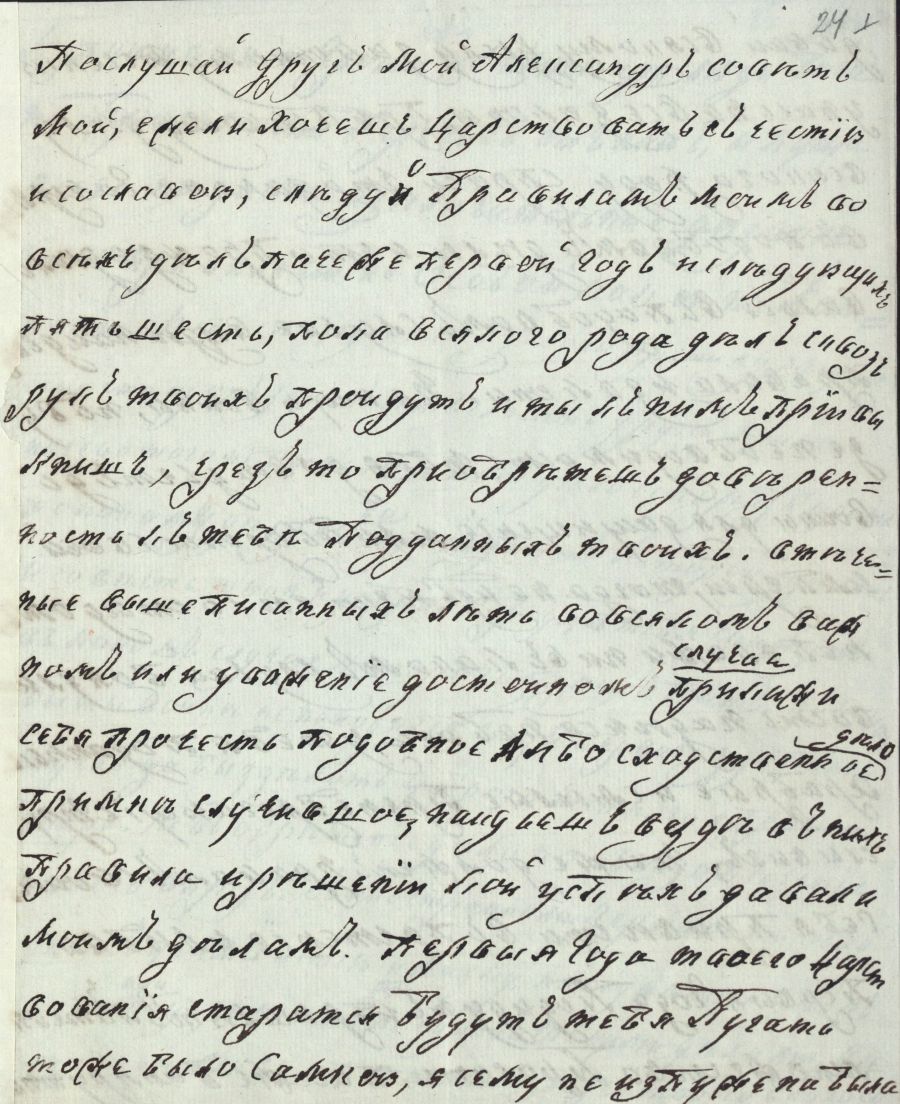 24
Послушай Другъ Мой Александръ совѣтъ
Мой, ежели хочешъ Царствовать съ честiю
и со славою, слѣдуй Правиламъ моимъ во
всѣхъ дѣлъ паче же первой годъ и слѣдующихъ
пять шесть, пока всякого рода дѣлъ сквозь
рукъ твоихъ проидутъ и ты къ нимъ прiвы
книшъ, чрезъ то приобрѣтешъ довѣрен=
ность къ тебѣ Подданныхъ твоихъ. в тѣче=
ные вышеписанныхъ лѣтъ во всякомъ важ
случае
номъ или уваженiе достоиномъ прикажи
дѣло
себя прочесть подобное либо сходственное
примнѣ случившое, найдьешъ вездѣ въ нихъ
правила и рѣшенiи кой успѣхъ давали
моимъ дѣламъ. Первыя Года твоего Царст
вованiя старатся будутъ тебя Пугать
тоже было самною, я сему не изпужена была